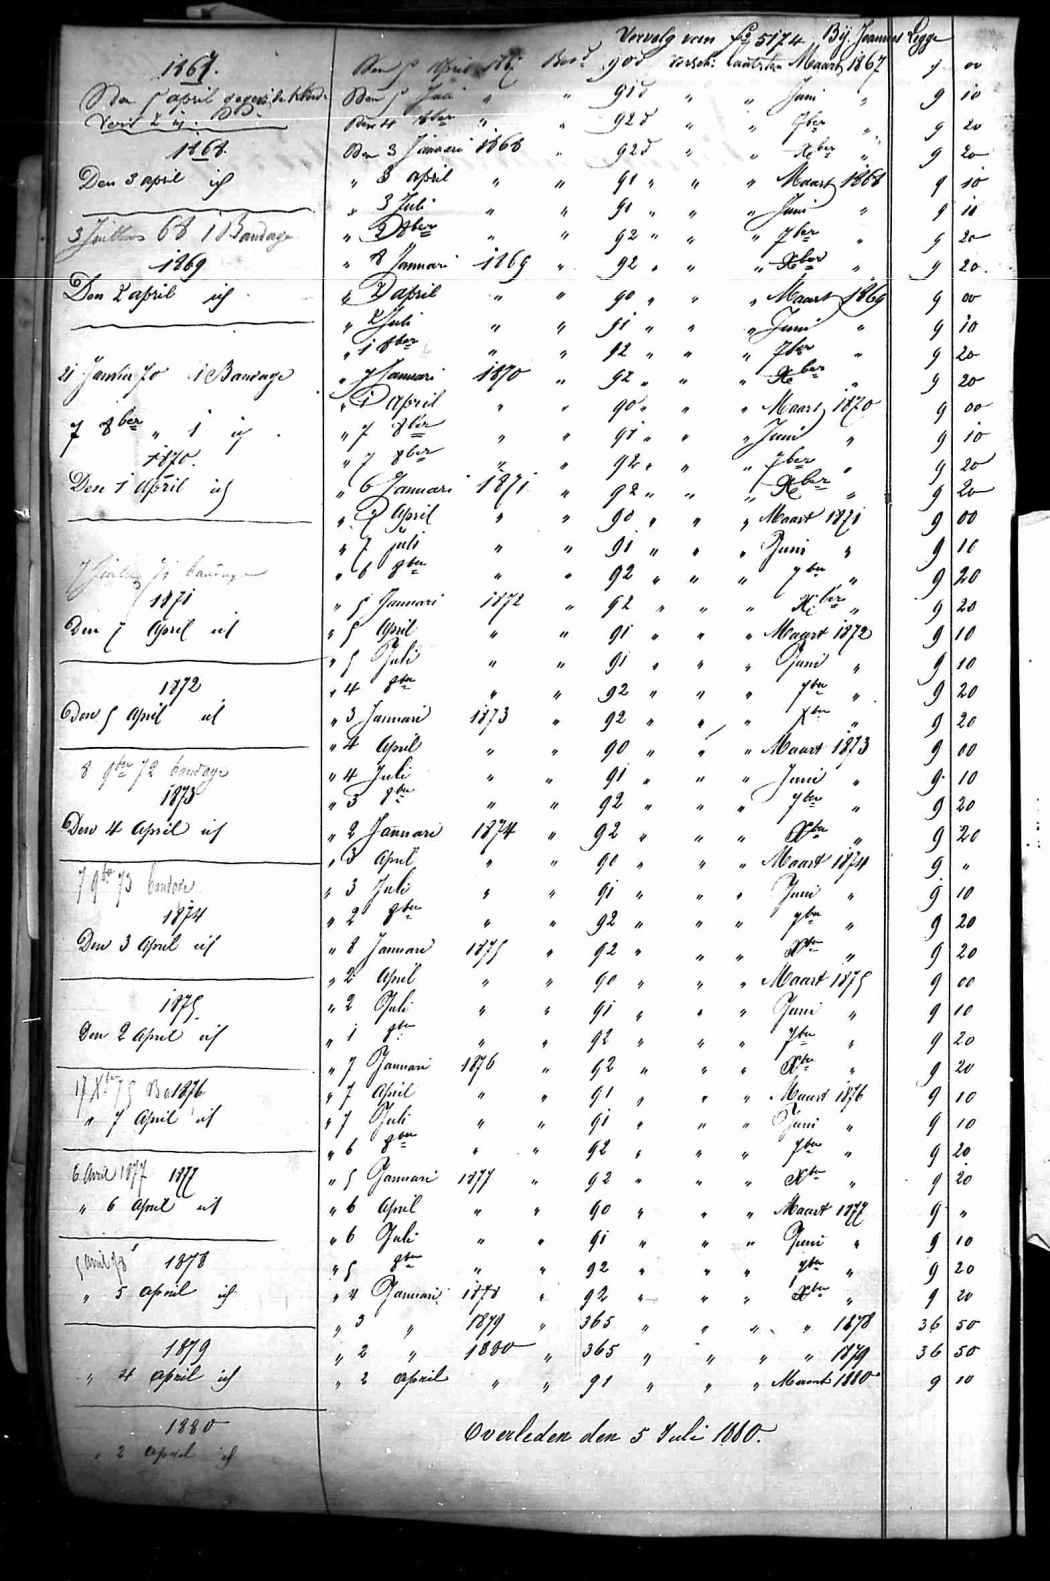 Vervolg van fo 5174 Bij Joannes Legge
1867.
Den 5 april
1868.
Den 3 april id
3 Juillet 68 1 Bandage
1869
Den 2 april id
21 Janvier 70 1 Bandage
7 8ber " 1 id
1870.
Den 1 April id
1871
Den 7 April id
1872
Den 5 April id
8 9ber 72 bandage
1873
Den 4 April id
7 9bre 73 bandage
1874
Den 3 April id
1875
Den 2 April id
17 Xbre 75 Ba 1876
" 7 April id
6 Avril 1877 1877
" 6 April id
5 avril 78 1878
" 5 april id
1879
" 4 april id
1880
" 2 april id
Den 5 April Maart 1867 9 00
Den 5 Juli " " 91 d " " Juni " 9 10
Den 4 8ber " " 92 d " " 7ber " 9 20
Den 3 Januari 1868 " 92 d " " Xber " 9 20
" 3 april " " 91 " " " Maart 1868 9 10
" 3 Juli " " 91 " " " Juni " 9 10
" 2 8ber " " 92 " " " 7ber " 9 20
" 8 Januari 1869 " 92 " " " Xber " 9 20.
" 2 april " " 90 " " " Maart 1869 9 00
" 2 Juli " " 91 " " " Juni " 9 10
" 1 8ber " " 92 " " " 7ber " 9 20
" 7 Januari 1870 " 92 " " " Xber " 9 20
" 1 April " " 90 " " " Maart 1870 9 00
" 7 8ber " " 91 " " " Juni " 9 10
" 7 8ber " " 92 " " " 7ber " 9 20
" 6 Januari 1871 " 92 " " " Xber " 9 20
" 7 April " " 90 " " " Maart 1871 9 00
" 7 juli " " 91 " " " Juni " 9 10
" 6 8ber " " 92 " " " 7ber " 9 20
" 5 Januari 1872 " 92 " " " Xber " 9 20
" 5 April " " 91 " " " Maart 1872 9 10
" 5 Juli " " 91 " " " Juni " 9 10
" 4 8ber " " 92 " " " 7ber " 9 20
" 3 Januari 1873 " 92 " " " Xber " 9 20
" 4 April " " 90 " " " Maart 1873 9 00
" 4 Juli " " 91 " " " Juni " 9 10
" 3 8ber " " 92 " " " 7ber " 9 20
" 2 Januari 1874 " 92 " " " Xber " 9 20
" 3 April " " 90 " " " Maart 1874 9 "
" 3 Juli " " 91 " " " Juni " 9 10
" 2 8ber " " 92 " " " 7ber " 9 20
" 8 Januari 1875 " 92 " " " Xber " 9 20
" 2 April " " 90 " " " Maart 1875 9 00
" 2 Juli " " 91 " " " Juni " 9 10
" 1 8ber " " 92 " " " 7ber " 9 20
" 7 Januari 1876 " 92 " " " Xber " 9 20
" 7 April " " 91 " " " Maart 1876 9 10
" 7 Juli " " 91 " " " Juni " 9 10
" 6 8ber " " 92 " " " 7ber " 9 20
" 5 Januari 1877 " 92 " " " Xber " 9 20
" 6 April " " 90 " " " Maart 1877 9 "
" 6 Juli " " 91 " " " Juni " 9 10
" 5 8ber " " 92 " " " 7ber " 9 20
" 4 Januari 1878 " 92 " " " Xber " 9 20
" 3 " 1879 " 365 " " " " 1878 36 50
" 2 " 1880 " 365 " " " " 1879 36 50
" 2 april " " 91 " " " Maart 1880 9 10
Overleden den 5 Juli 1880.